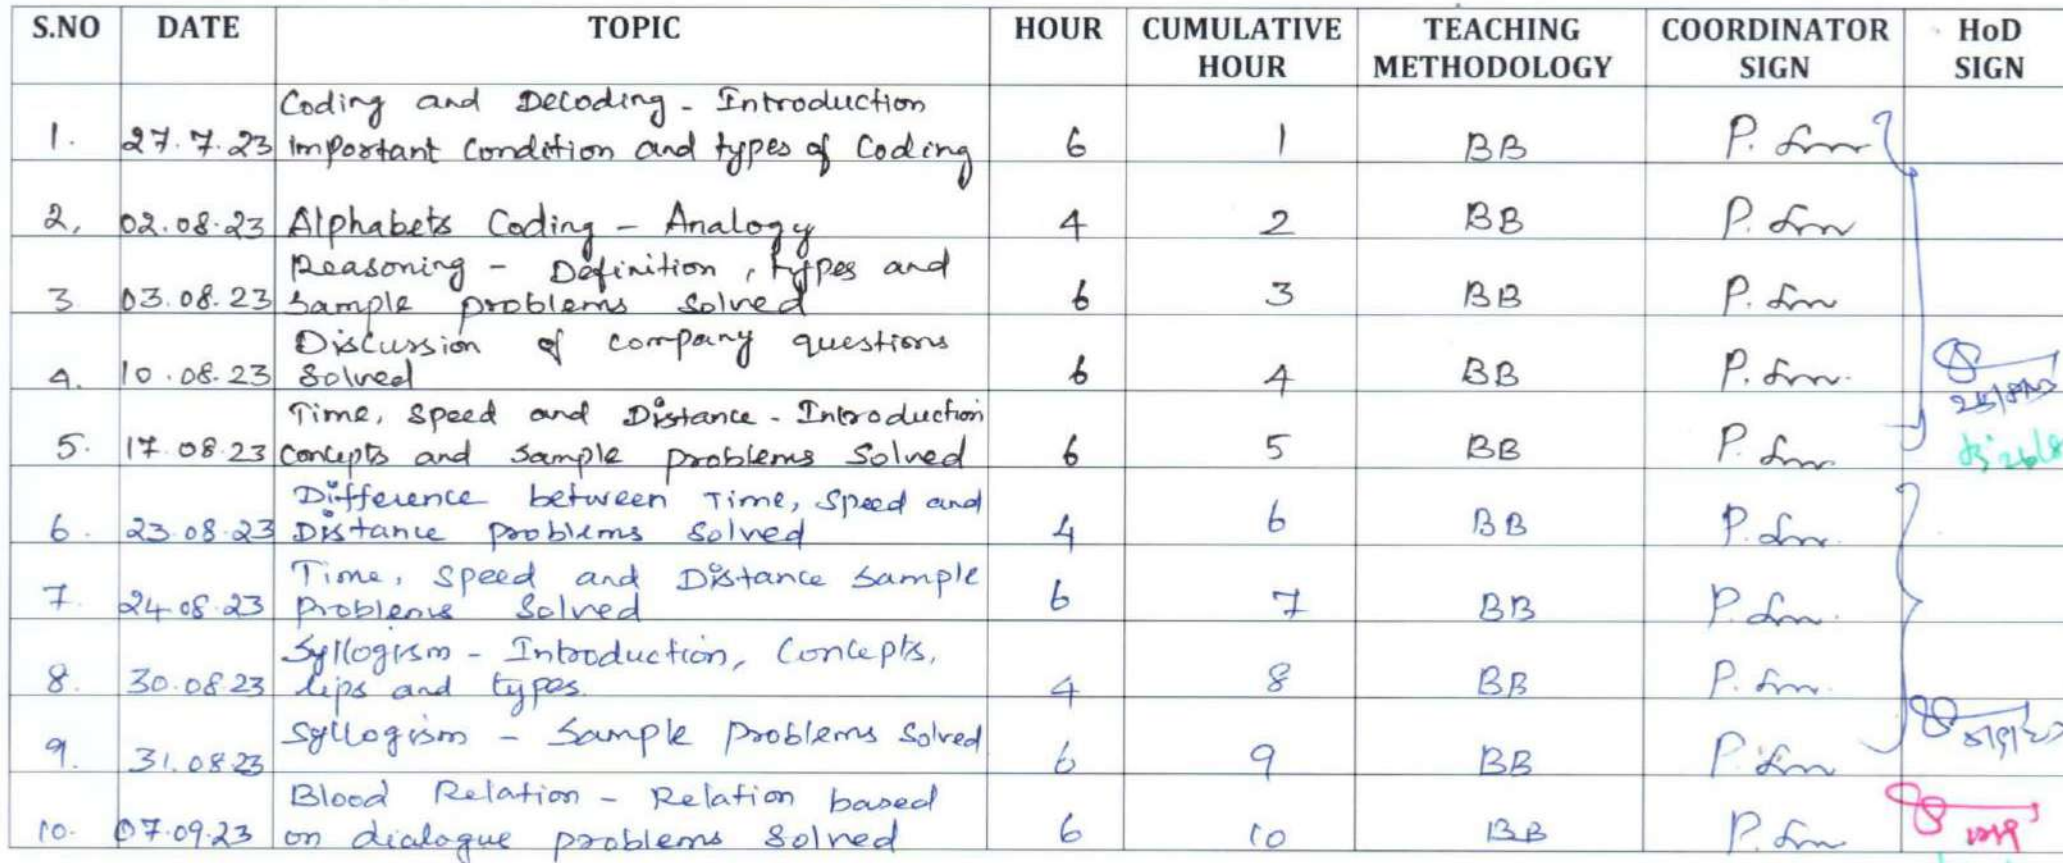 S.NO DATE TOPIC HOUR CUMULATIVE HOUR TEACHING METHODOLOGY COORDINATOR SIGN HoD SIGN
Coding and Decoding - Introduction
1. 27.7.23 important Condition and types of Coding 6 1 BB
2. 02.08.23 Alphabets Coding - Analogy 4 2 BB
Reasoning - Definition, types and
3 03.08.23 Sample problems solved 6 3 BB
Discussion of company questions
4. 10.08.23 Solved 6 4 BB
Time, Speed and Distance - Introduction
5. 17.08.23 concepts and sample problems Solved 6 5 BB
Difference between Time, Speed and
6. 23.08.23 Distance problems Solved 4 6 BB
Time, Speed and Distance Sample
7. 24.08.23 problems Solved 6 7 BB
Syllogism - Introduction, Concepts,
8. 30.08.23 tips and types. 4 8 BB
9. 31.08.23 Syllogism - Sample problems Solved 6 9 BB
Blood Relation - Relation based
10. 07.09.23 on dialogue problems Solved 6 10 BB